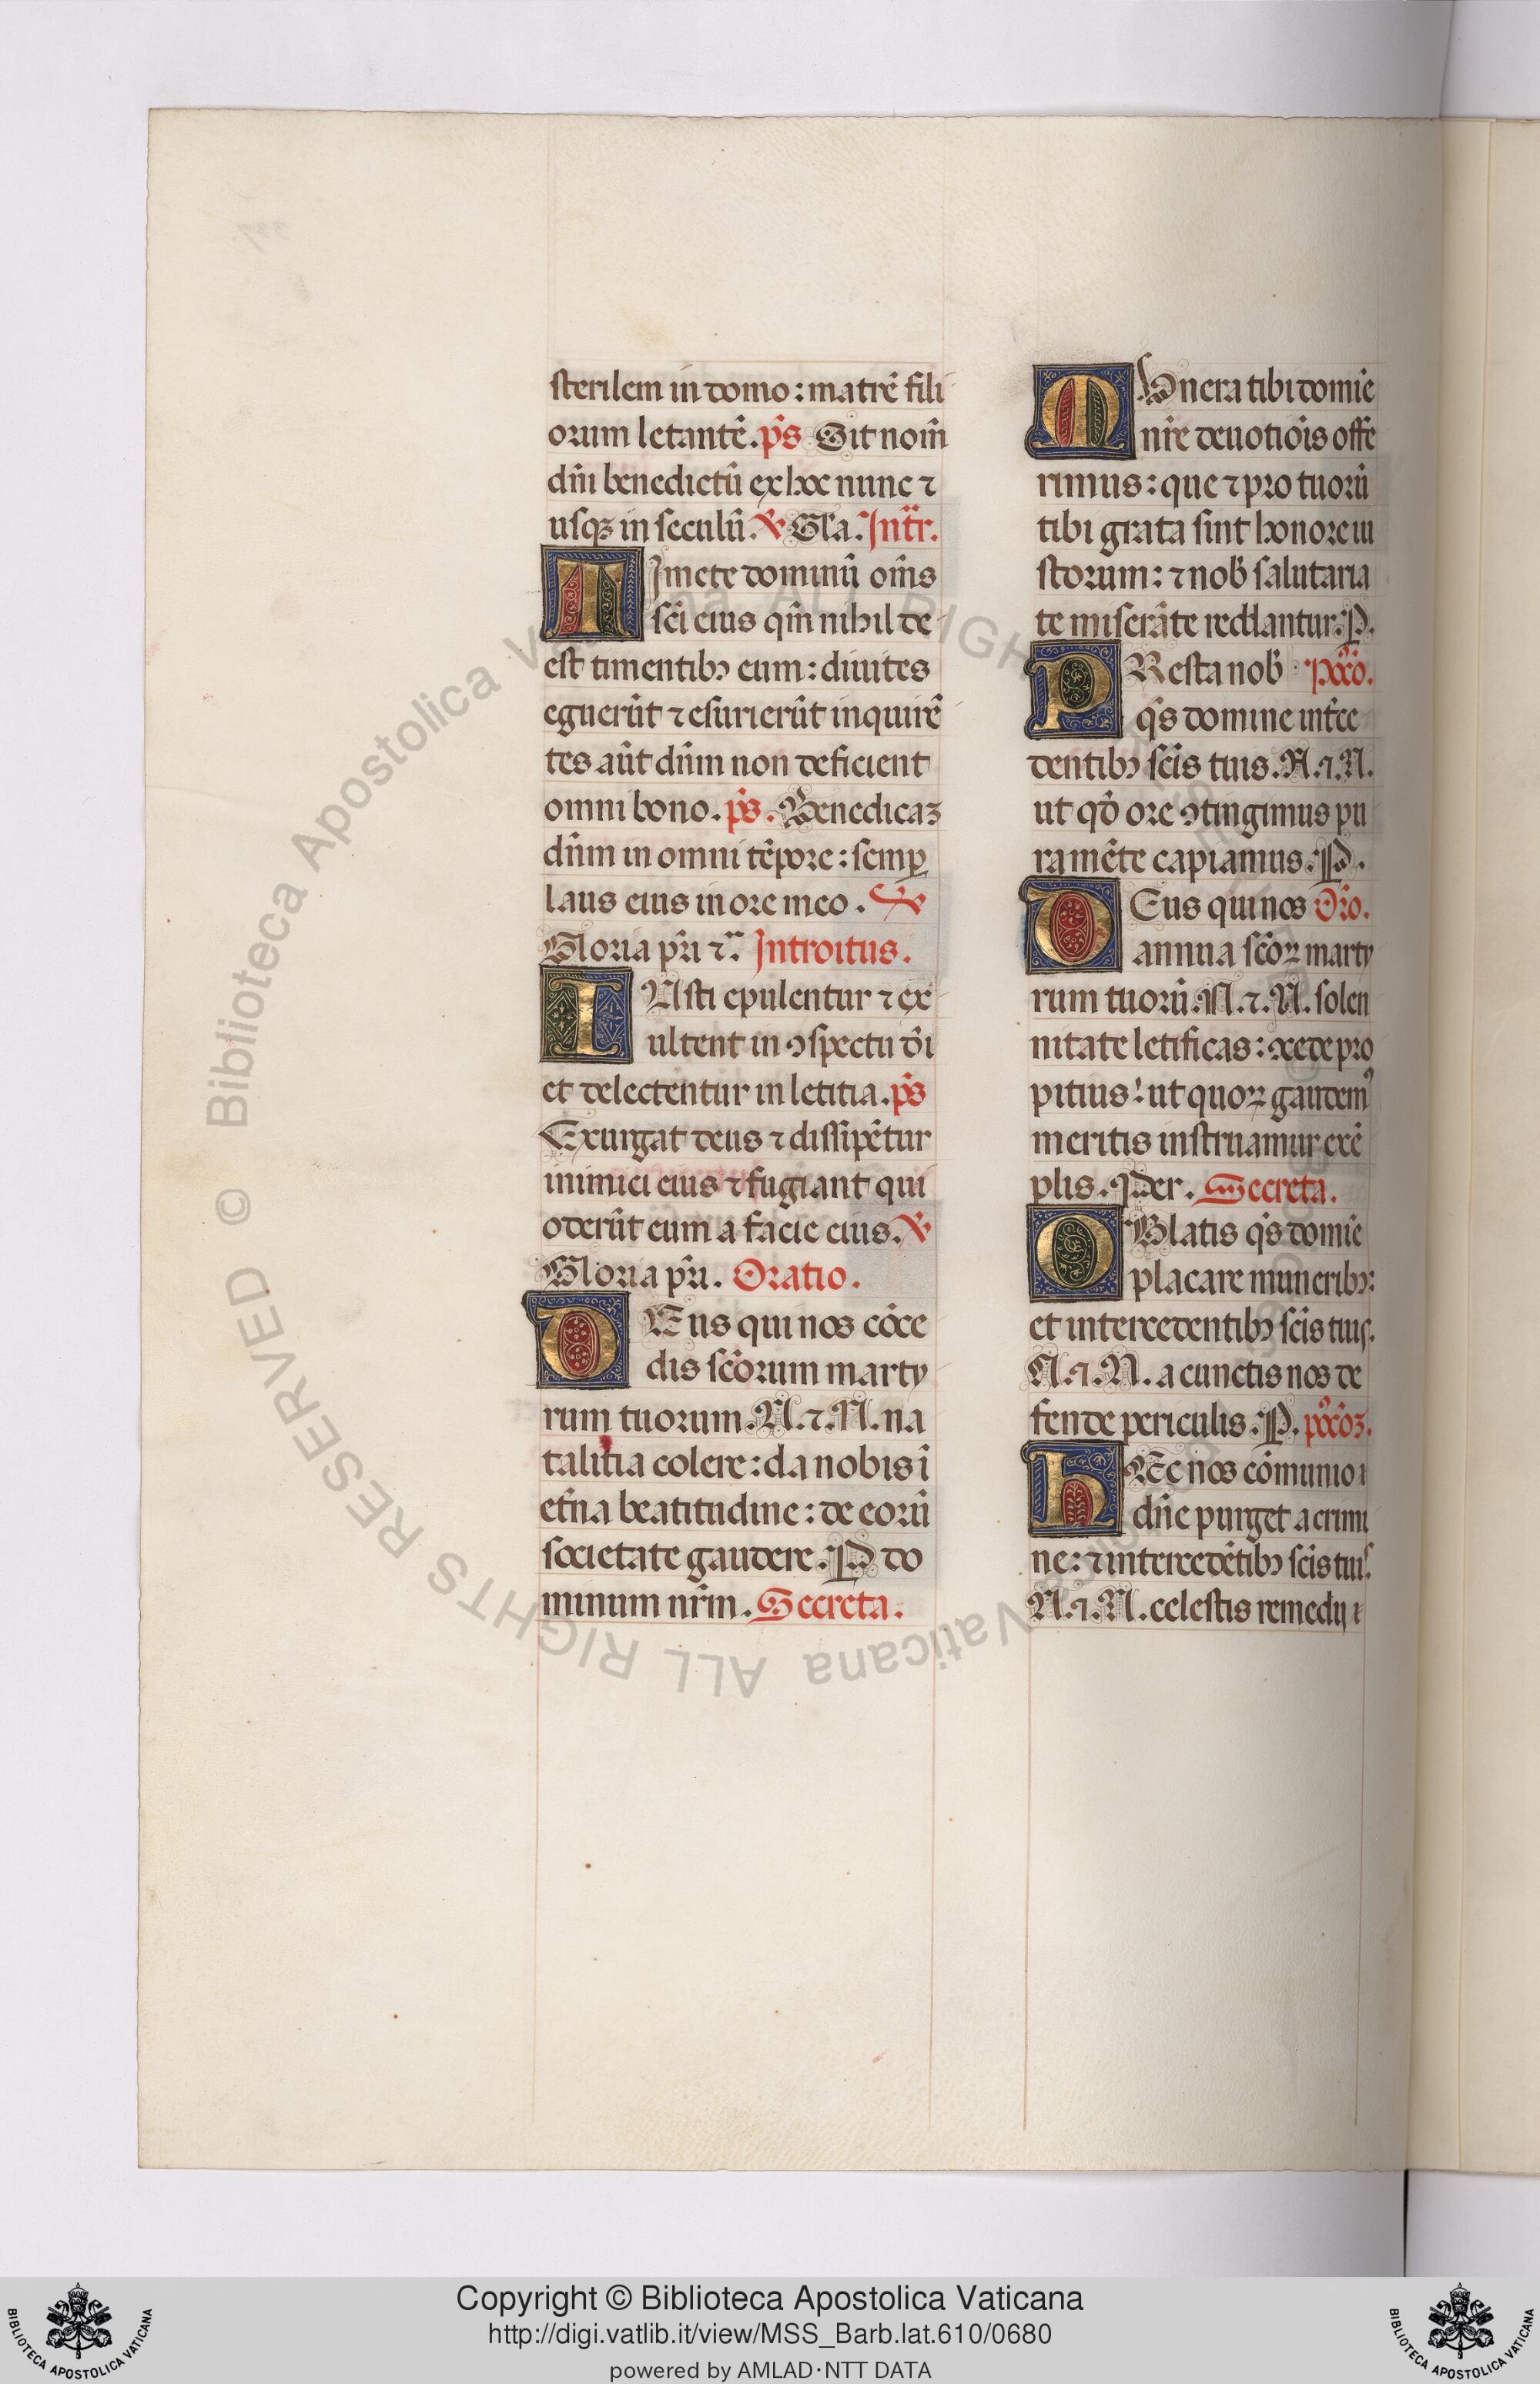 sterilem in domo: matrē fili
orum letantē. ps̄ Sit nom̄
dn̄i benedictū ex hoc nunc ⁊
usqꝫ in seculū. ℣ Gl̄a. Intr̄.
TImete dominū om̄s
sc̄i eius qm̄ nihil de
est timentibꝰ eum: diuites
eguerūt ⁊ esurierūt inquirē
tes aūt dn̄m non deficient
omni bono. ps̄. Benedicaꝫ
dn̄m in omni tēpore: semꝑ
laus eius in ore meo. ℣
Gloria pr̄i ⁊c̄. Introitus.
IUsti epulentur ⁊ ex
ultent in ꝯspectu d̄i
et delectentur in letitia. ps̄
Exurgat deus ⁊ dissipētur
inimici eius ⁊ fugiant qui
oderūt eum a facie eius. ℣
Gloria pr̄i. Oratio.
DEus qui nos cōce
dis sc̄orum marty
rum tuorum. N. ⁊. N. na
talitia colere: da nobis ī
et̄na beatitudine: de eorū
societate gaudere. P do
minum nr̄m. Secreta.
MUnera tibi domīe
nr̄e deuotiōis offe
rimus: que ⁊ pro tuorū
tibi grata sint honore iu
storum: ⁊ nob̄ salutaria
te miserāte reddantur. P.
PResta nob̄ Pꝯō.
qs̄ domine int̄ce
dentibꝰ sc̄is tuis. N. ⁊. N.
ut qd̄ ore ꝯtingimus pu
ra mēte capiamus. P.
DEus qui nos Or̄o.
annua sc̄oꝝ marty
rum tuorū. N. ⁊. N. solen
nitate letificas: ꝯcede pro
pitius: ut quoꝝ gaudemꝰ
meritis instruamur exē
plis. Per. Secreta.
OBlatis qs̄ domīe
placare muneribꝰ:
et intercedentibꝰ sc̄is tuis.
N. ⁊. N. a cunctis nos de
fende periculis. P. pꝯōꝫ.
HEc nos cōmunio
dn̄e purget a crimi
ne: ⁊ intercedētibꝰ sc̄is tuis
N. ⁊. N. celestis remedij
© Biblioteca Apostolica Vaticana ALL RIGHTS RESERVED
Copyright © Biblioteca Apostolica Vaticana
http://digi.vatlib.it/view/MSS_Barb.lat.610/0680
powered by AMLAD·NTT DATA
BIBLIOTECA APOSTOLICA VATICANA
BIBLIOTECA APOSTOLICA VATICANA